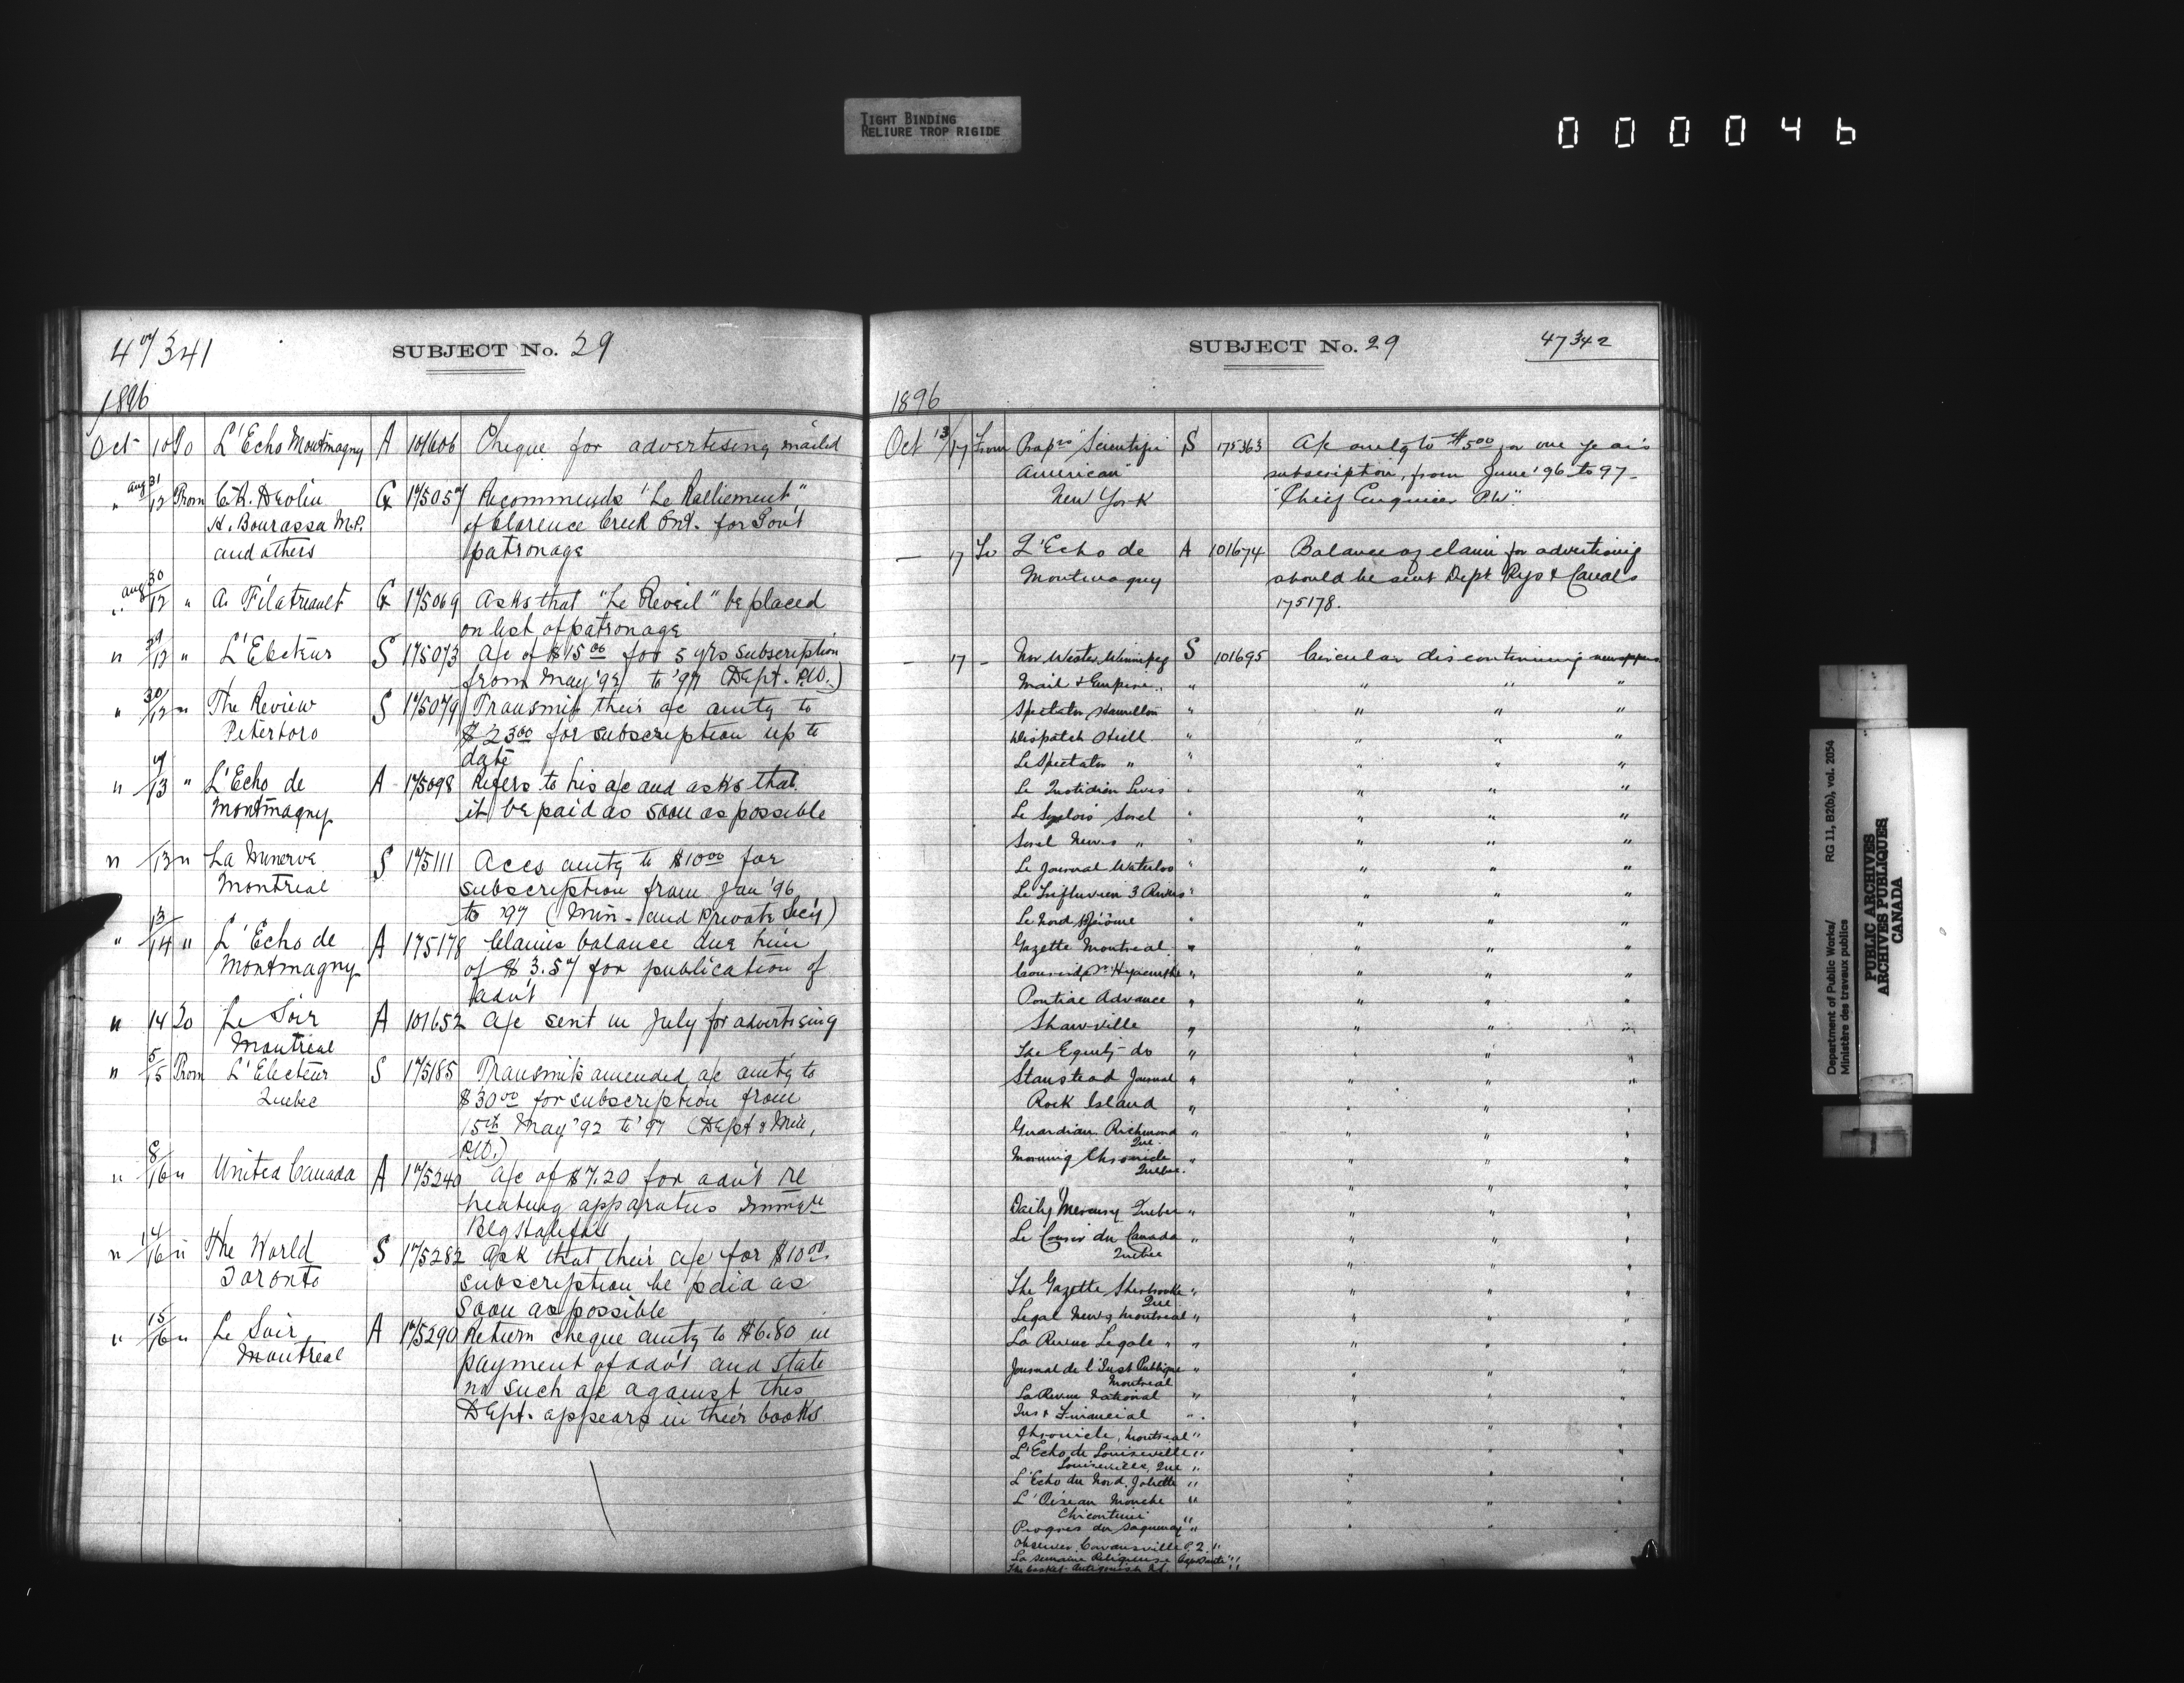 TIGHT BINDING
RELIURE TROP RIGIDE
000046
47341
SUBJECT No. 29
1896
Oct 10 To L'Echo Montmagny A 101606 Cheque for advertising mailed
" Aug 31/12 From C.R. Devlin G 175057 Recommends "Le Ralliement"
H. Bourassa M.P. of Clarence Creek Ont. for Gov't
and others patronage
" Aug 30/12 " A. Filatreault G 175069 Asks that "Le Reveil" be placed
on list of patronage
" 29/12 " L'Electeur S 175073 a/c of $15.00 for 5 yrs subscription
from May '92 to '97 (Dept. P.W.)
" 30/12 " The Review S 175079 Transmit their a/c amtg to
Peterboro $23.00 for subscription up to
date
" 9/13 " L'Echo de A 175098 Refers to his a/c and asks that
Montmagny it be paid as soon as possible
" /13 " La Minerve S 175111 Accs amtg to $10.00 for
Montreal subscription from Jan '96
to '97 (Min. and Private Sec'y)
" 13/14 " L'Echo de A 175178 Claims balance due him
Montmagny of $3.57 for publication of
adv't
" 14 To Le Soir A 101652 a/c sent in July for advertising
Montreal
" 5/15 From L'Electeur S 175185 Transmits amended a/c amtg to
Quebec $30.00 for subscription from
15th May '92 to '97 (Dept & Min,
P.W.)
" 8/16 " United Canada A 175240 a/c of $7.20 for adv't re
heating apparatus
Bldg Halifax
" 14/16 " The World S 175282 Ask that their a/c for $10.00
Toronto subscription be paid as
soon as possible
" 15/16 " Le Soir A 175290 Return cheque amtg to $6.80 in
Montreal payment of adv't and state
no such a/c against this
Dept. appears in their books
SUBJECT No. 29
47342
1896
Oct 13/17 From Prop's "Scientific S 175363 A/c amtg to $5.00 for one year's
American" subscription, from June '96 to 97-
New York "Chief Engineer P.W."
— 17 To L'Echo de A 101674 Balance of claim for advertising
Montmagny should be sent Dept Rys & Canals
175178.
— 17 - Nor Wester, Winnipeg S 101695 Circular discontinuing newspapers
Mail & Empire " " " "
Spectator Hamilton " " " "
Dispatch Hull " " " "
Le Spectateur " " " " "
Le Quotidien Levis " " " "
Le Sorelois Sorel " " " "
Sorel News " " " " "
Le Journal Waterloo " " " "
Le Trifluvien 3 Rivers " " " "
Le Nord St Jérôme " " " "
Gazette Montreal " " " "
Courrier de St Hyacinthe " " " "
Pontiac Advance " " " "
Shawville " " " "
The Equity do " " " "
Stanstead Journal " " " "
Rock Island " " " "
Guardian Richmond " " " "
Que.
Morning Chronicle " " " "
Quebec.
Daily Mercury Quebec " " " "
Le Courrier du Canada " " " "
Quebec
The Gazette Sherbrooke " " " "
Que
Legal News Montreal " " " "
La Revue Legale " " " " "
Journal de l'Inst Publique " " " "
Montreal
La Revue National " " " "
Ins & Financial "
Chronicle, Montreal " " " "
L'Echo de Louiseville " " " "
Louiseville, Que "
L'Echo du Nord, Joliette " " " "
L'Oiseau Mouche " " " "
Chicoutimi "
Progres du Saguenay " " "
Observer Cowansville P.Q. "
La Semaine Religieuse "
The Casket Antigonish N.S. "
Department of Public Works/
Ministère des travaux publics
RG 11, B2(b), vol. 2054
PUBLIC ARCHIVES
ARCHIVES PUBLIQUES
CANADA